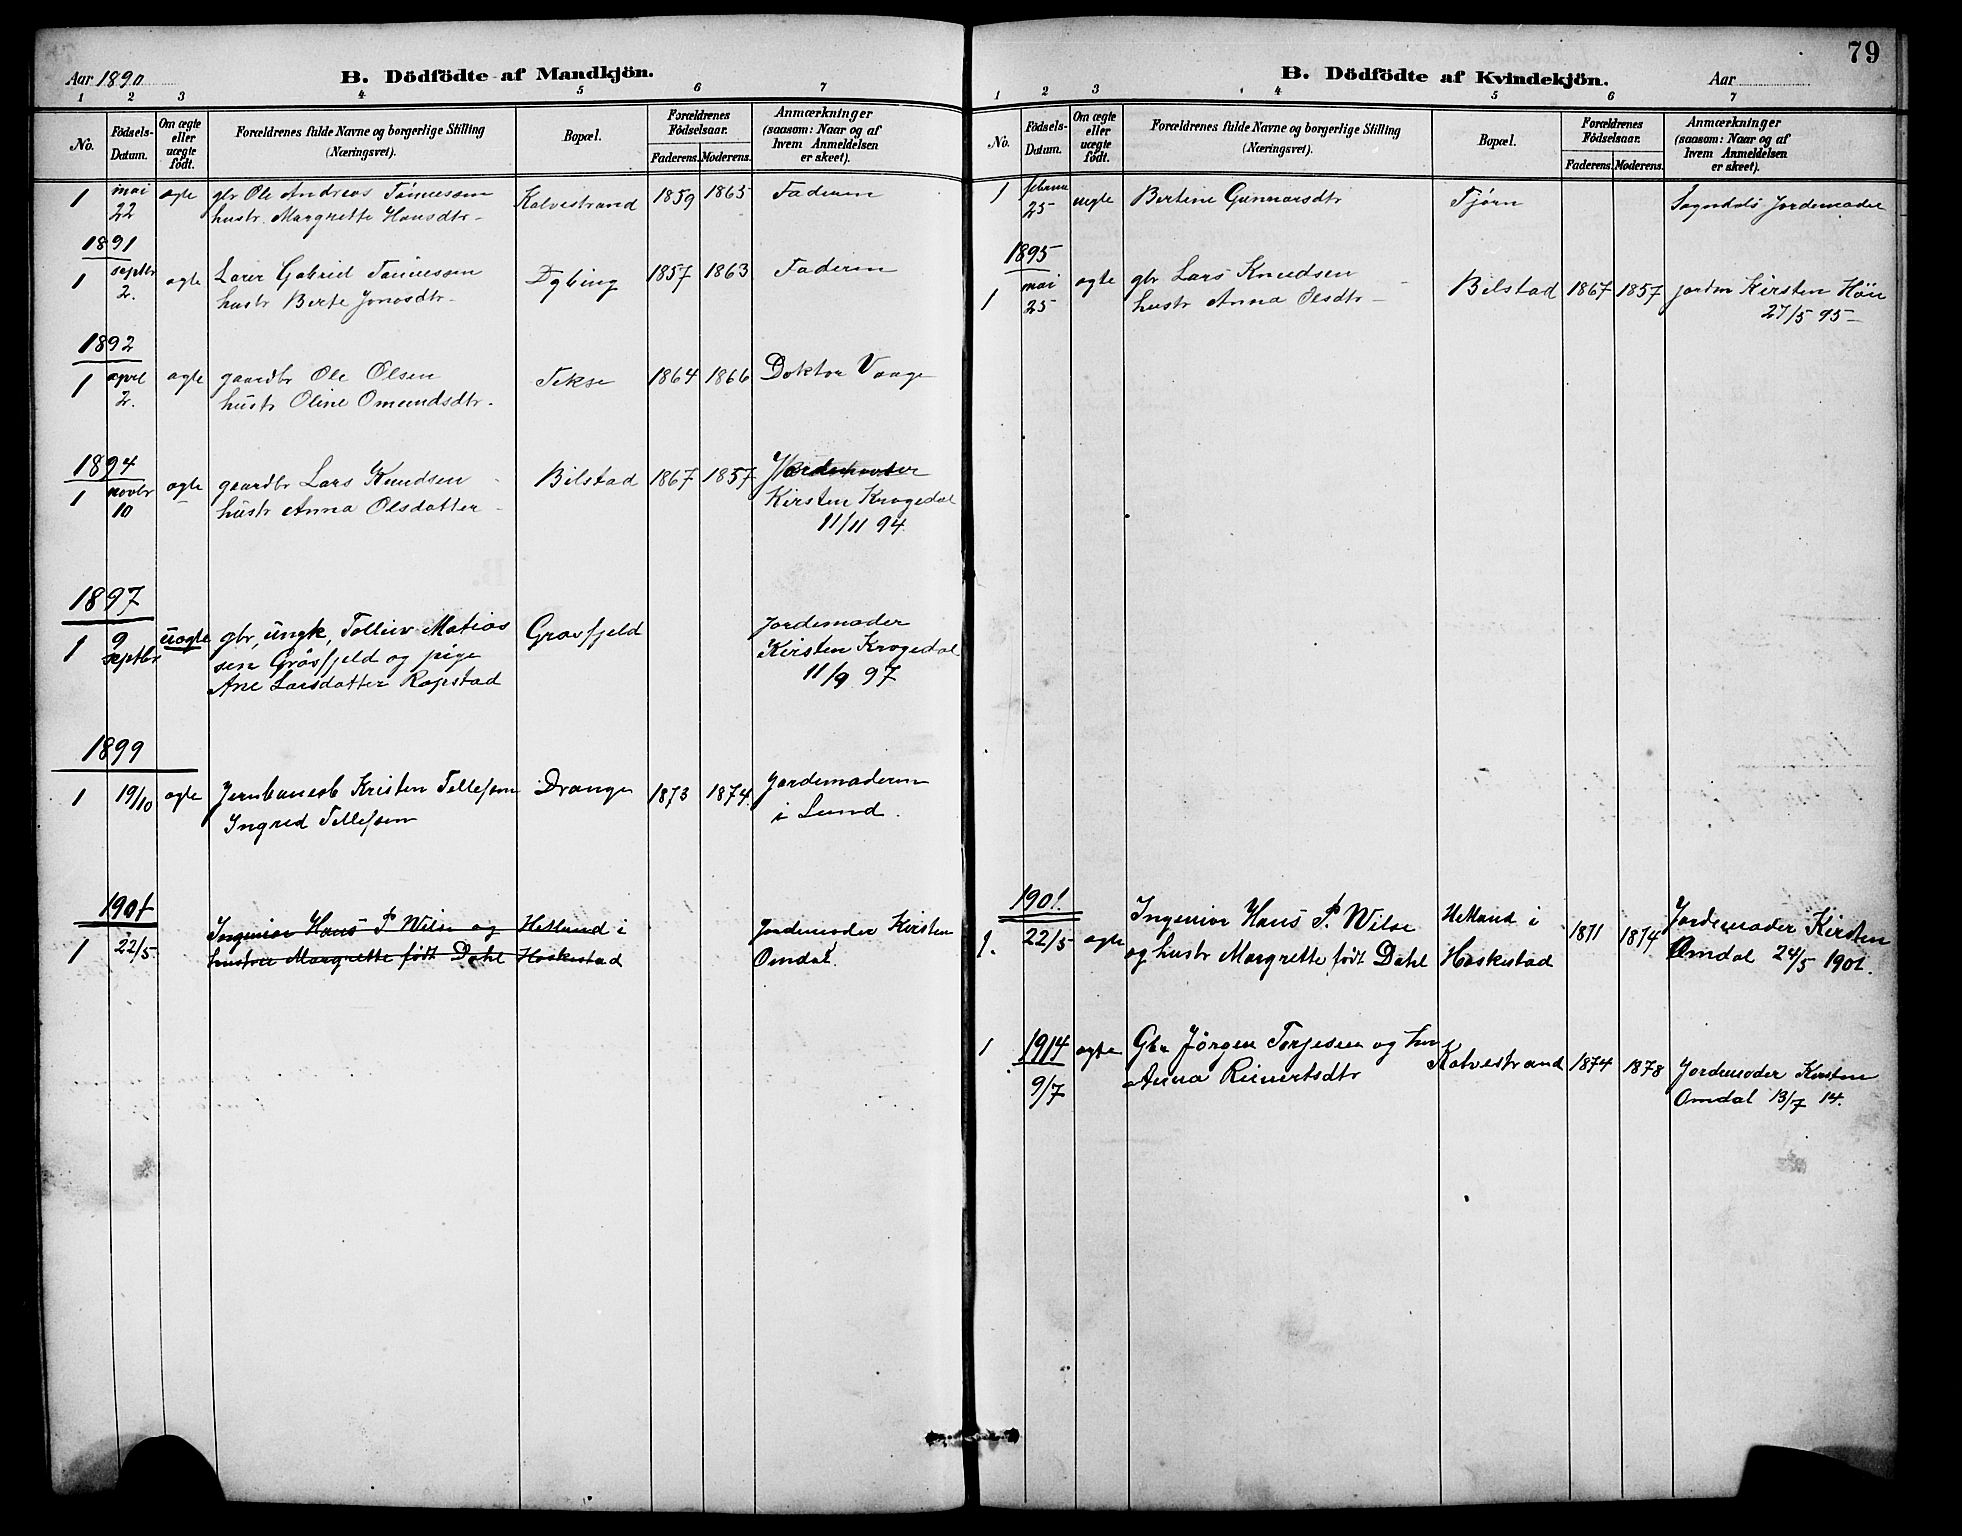 Aar 1890
B. Dödfödte af Mandkjön.
1 2 3 4 5 6 7
No.
Födsels-Datum.
Om ægte eller uægte födt.
Forældrenes fulde Navne og borgerlige Stilling (Næringsvei).
Bopæl.
Forældrenes Födselsaar.
Faderens. Moderens.
Anmærkninger (saasom: Naar og af hvem Anmeldelsen er skeet).
1 mai 22 ægte gbr Ole Andreas Tønnessen Kalvestrand 1859 1865 Faderen
hustr. Margrette Hansdtr
1891
1 septbr 2. ægte Lærer Gabriel Tønnessen Dybing 1857 1863 Faderen
hustr Berte Jonasdtr
1892
1 april 2. ægte gaardbr Ole Olsen Tekse 1864 1866 Doktor Vaage
hustr Oline Omundsdtr.
1894
1 novbr 10 ægte gaardbr Lars Knudsen Bilstad 1867 1857 Jordemoder
hustr Anna Olsdatter Kirsten Krogedal
11/11 94
1897
1 9 septbr uægte gbr, ungk, Tolliev Mathias Gravfjeld Jordemoder
sen Gravfjeld og pige Kirsten Krogedal
Ane Larsdatter Rapstad 11/9 97
1899
1 19/10 ægte Jernbanearb Kristen Tellefsen Drange 1873 1874 Jordemoderen
Ingred Tellefsen i Lund.
1901
1 22/5 Ingeniør Hans P Wilse og Hetland i Jordemoder Kirsten
hustru Margrette født Dahl Heskestad Omdal.
79
B. Dödfödte af Kvindekjön.
Aar
1 2 3 4 5 6 7
No.
Födsels-Datum.
Om ægte eller uægte födt.
Forældrenes fulde Navne og borgerlige Stilling (Næringsvei).
Bopæl.
Forældrenes Födselsaar.
Faderens. Moderens.
Anmærkninger (saasom: Naar og af hvem Anmeldelsen er skeet).
1 februar 25 uægte Bertine Gunnarsdtr Tjørn Sogndals Jordemoder
1895
1 mai 25 ægte gbr Lars Knudsen Bilstad 1867 1857 jordm Kirsten
hustr Anna Olsdtr 27/5 95
1901.
1. 22/5 ægte Ingeniør Hans P. Wilse Hetland i 1871 1874 Jordemoder Kirsten
og hustr Margrette født Dahl Heskestad Omdal 24/5 1901.
1 1914 ægte Gbr Jørgen Torjesen og hu Kalvestrand 1874 1878 Jordemoder Kirsten
9/7 Anna Reinertsdtr Omdal 13/7 14.